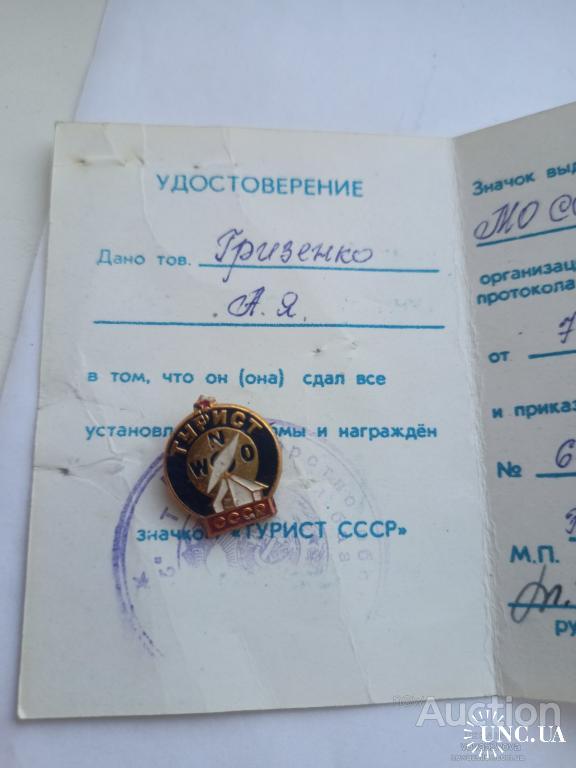 УДОСТОВЕРЕНИЕ
Дано тов. Гризенко
А.Я.
в том, что он (она) сдал все
установл мы и награждён
значко «ТУРИСТ СССР»
ТУРИСТ
N
W O
СССР
Значок выд
МО СС
организац
протокола
от 7
и приказ
№ 6
М.П.
ру
Auction
UNC.UA